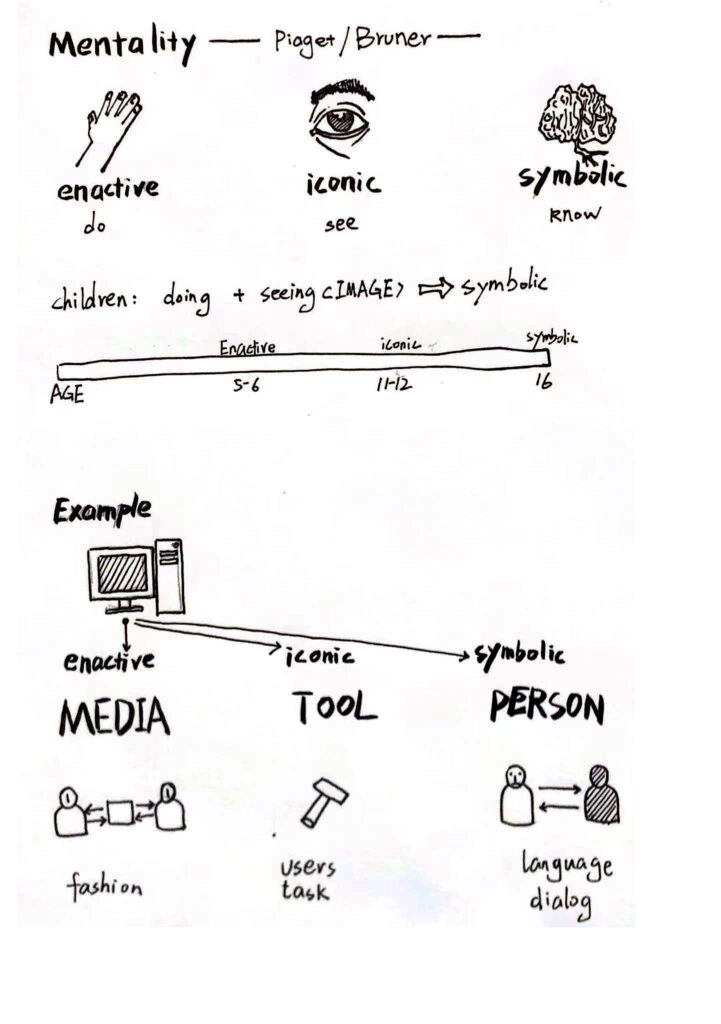 Mentality — Piaget/Bruner —
enactive iconic symbolic
do see know
children: doing + seeing <IMAGE> ⇒ symbolic
Enactive iconic symbolic
AGE 5-6 11-12 16
Example
enactive iconic symbolic
MEDIA TOOL PERSON
fashion users task language dialog